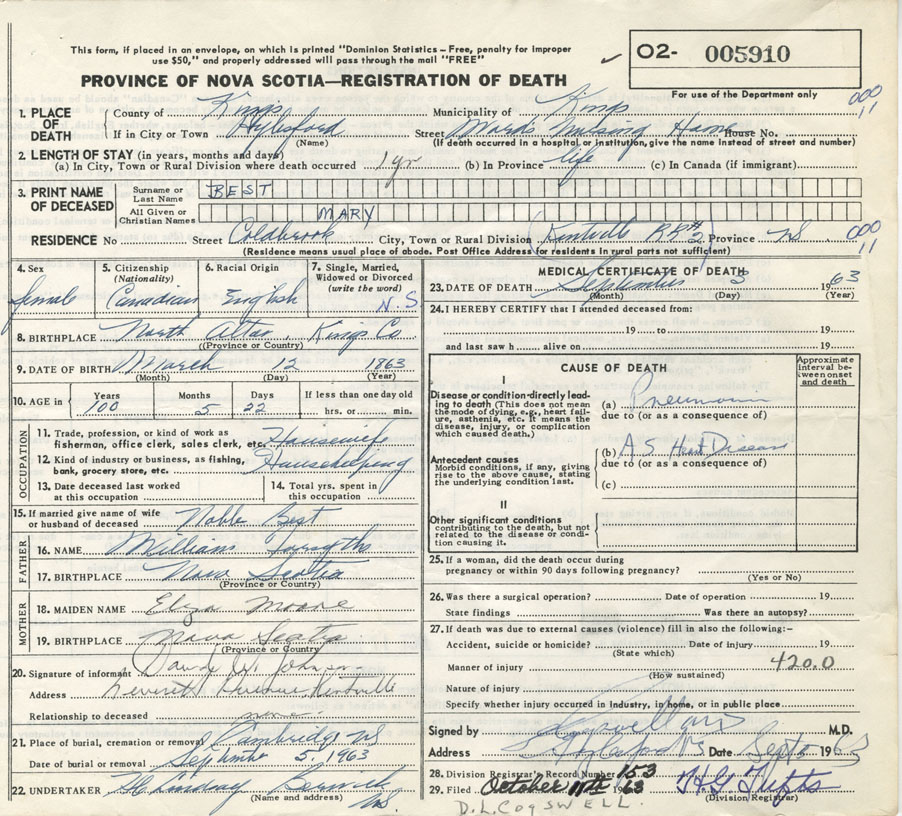 This form, if placed in an envelope, on which is printed "Dominion Statistics – Free, penalty for improper
use $50," and properly addressed will pass through the mail "FREE"
PROVINCE OF NOVA SCOTIA—REGISTRATION OF DEATH
O2- 005910
For use of the Department only
000
11
1. PLACE OF DEATH
County of Kings
Municipality of Kings
If in City or Town Aylesford
(Name)
Street Ward's Nursing Home House No.
(If death occurred in a hospital or institution, give the name instead of street and number)
2. LENGTH OF STAY (in years, months and days)
(a) In City, Town or Rural Division where death occurred 1 yr (b) In Province life (c) In Canada (if immigrant)
3. PRINT NAME OF DECEASED
Surname or Last Name BEST
All Given or Christian Names MARY
RESIDENCE No Street Coldbrook City, Town or Rural Division Kentville RR# 2 Province NS
000
11
(Residence means usual place of abode. Post Office Address for residents in rural parts not sufficient)
4. Sex
female
5. Citizenship
(Nationality)
Canadian
6. Racial Origin
English
7. Single, Married,
Widowed or Divorced
(write the word)
N.S
8. BIRTHPLACE North Kings Co
(Province or Country)
9. DATE OF BIRTH March 12 1863
(Month) (Day) (Year)
10. AGE in
Years Months Days If less than one day old
100 5 22 hrs. or min.
OCCUPATION
11. Trade, profession, or kind of work as
fisherman, office clerk, sales clerk, etc. Housewife
12. Kind of industry or business, as fishing,
bank, grocery store, etc. Housekeeping
13. Date deceased last worked
at this occupation
14. Total yrs. spent in
this occupation
15. If married give name of wife
or husband of deceased Noble Best
FATHER
16. NAME William Forsythe
17. BIRTHPLACE Nova Scotia
(Province or Country)
MOTHER
18. MAIDEN NAME Eliza Moore
19. BIRTHPLACE Nova Scotia
(Province or Country)
20. Signature of informant
Address Leverett Avenue Kentville
Relationship to deceased none
21. Place of burial, cremation or removal Cambridge NS
Date of burial or removal September 5, 1963
22. UNDERTAKER Lindsay Berwick
NS.
(Name and address)
MEDICAL CERTIFICATE OF DEATH
23. DATE OF DEATH September 3 1963
(Month) (Day) (Year)
24. I HEREBY CERTIFY that I attended deceased from:
19 to 19
and last saw h alive on 19
CAUSE OF DEATH
Approximate interval between onset and death
I
Disease or condition directly leading to death (This does not mean
the mode of dying, e.g., heart failure, asthenia, etc. It means the
disease, injury, or complication
which caused death.)
(a) Pneumonia
due to (or as a consequence of)
Antecedent causes
Morbid conditions, if any, giving
rise to the above cause, stating
the underlying condition last.
(b) A S Heart Disease
due to (or as a consequence of)
(c)
II
Other significant conditions
contributing to the death, but not
related to the disease or condition causing it.
25. If a woman, did the death occur during
pregnancy or within 90 days following pregnancy?
(Yes or No)
26. Was there a surgical operation? Date of operation 19
State findings Was there an autopsy?
27. If death was due to external causes (violence) fill in also the following:-
Accident, suicide or homicide? Date of injury 19
(State which)
420.0
Manner of injury
(How sustained)
Nature of injury
Specify whether injury occurred in industry, in home, or in public place
Signed by M.D.
Address Date Sept 1963
28. Division Registrar's Record Number 153
29. Filed October 11th 1963 H G Tufts
(Division Registrar)
D.L. COGSWELL.